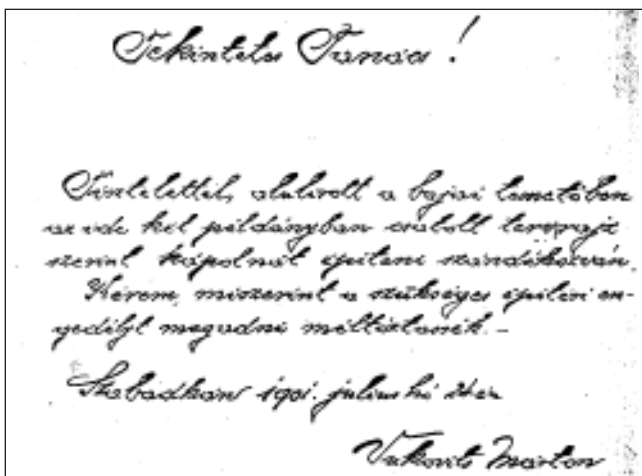 Tekintetes Tanács!
Tisztelettel, alulirott a bajai temetőben
az ide két példányban csatolt tervrajz
szerint kápolnát épiteni szándékozván.
Kérem, miszerint a szükséges épitési en-
gedélyt megadni méltóztassék. –
Szabadkán 1901. julius hó
Vukovits Márton